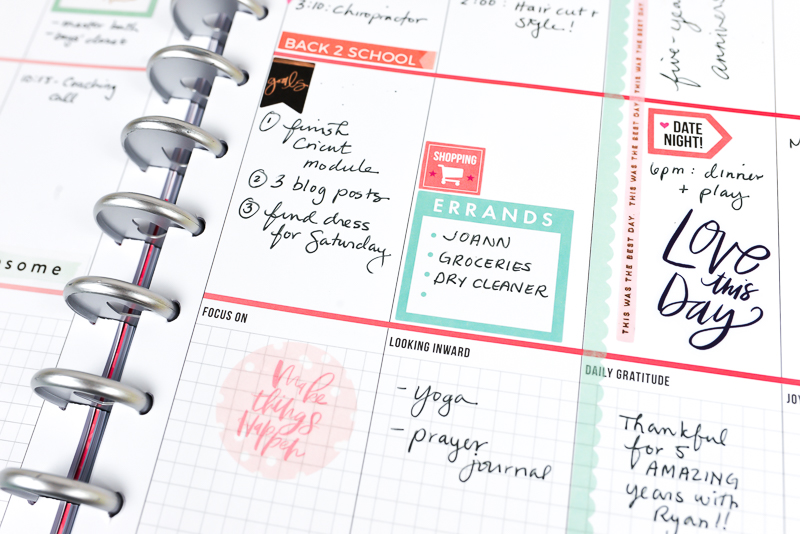 - master bath
10:15 - Coaching
call
some
3:10: Chiropractor
BACK 2 SCHOOL
goals
1 finish
Cricut
module
2 3 blog posts
3 find dress
for Saturday
FOCUS ON
Make
things
Happen
2:00: Hair cut +
style!
SHOPPING
ERRANDS
JOANN
GROCERIES
DRY CLEANER
LOOKING INWARD
- yoga
- prayer
journal
THIS WAS THE BEST DAY THIS WAS THE BEST DAY THIS WAS THE BEST DAY
five-year
DATE
NIGHT!
6pm: dinner
+ play
Love
this
Day
DAILY GRATITUDE
Thankful
for 5
AMAZING
years with
Ryan!!
JOY